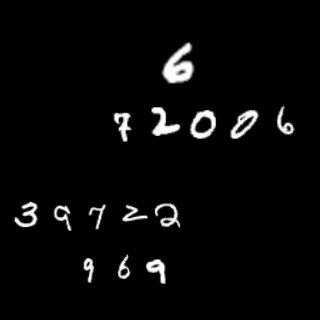 6
72006
39722
969